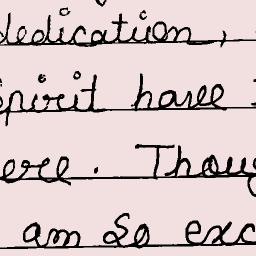 dedication,
spirit have
ere. Thoug
am so exc